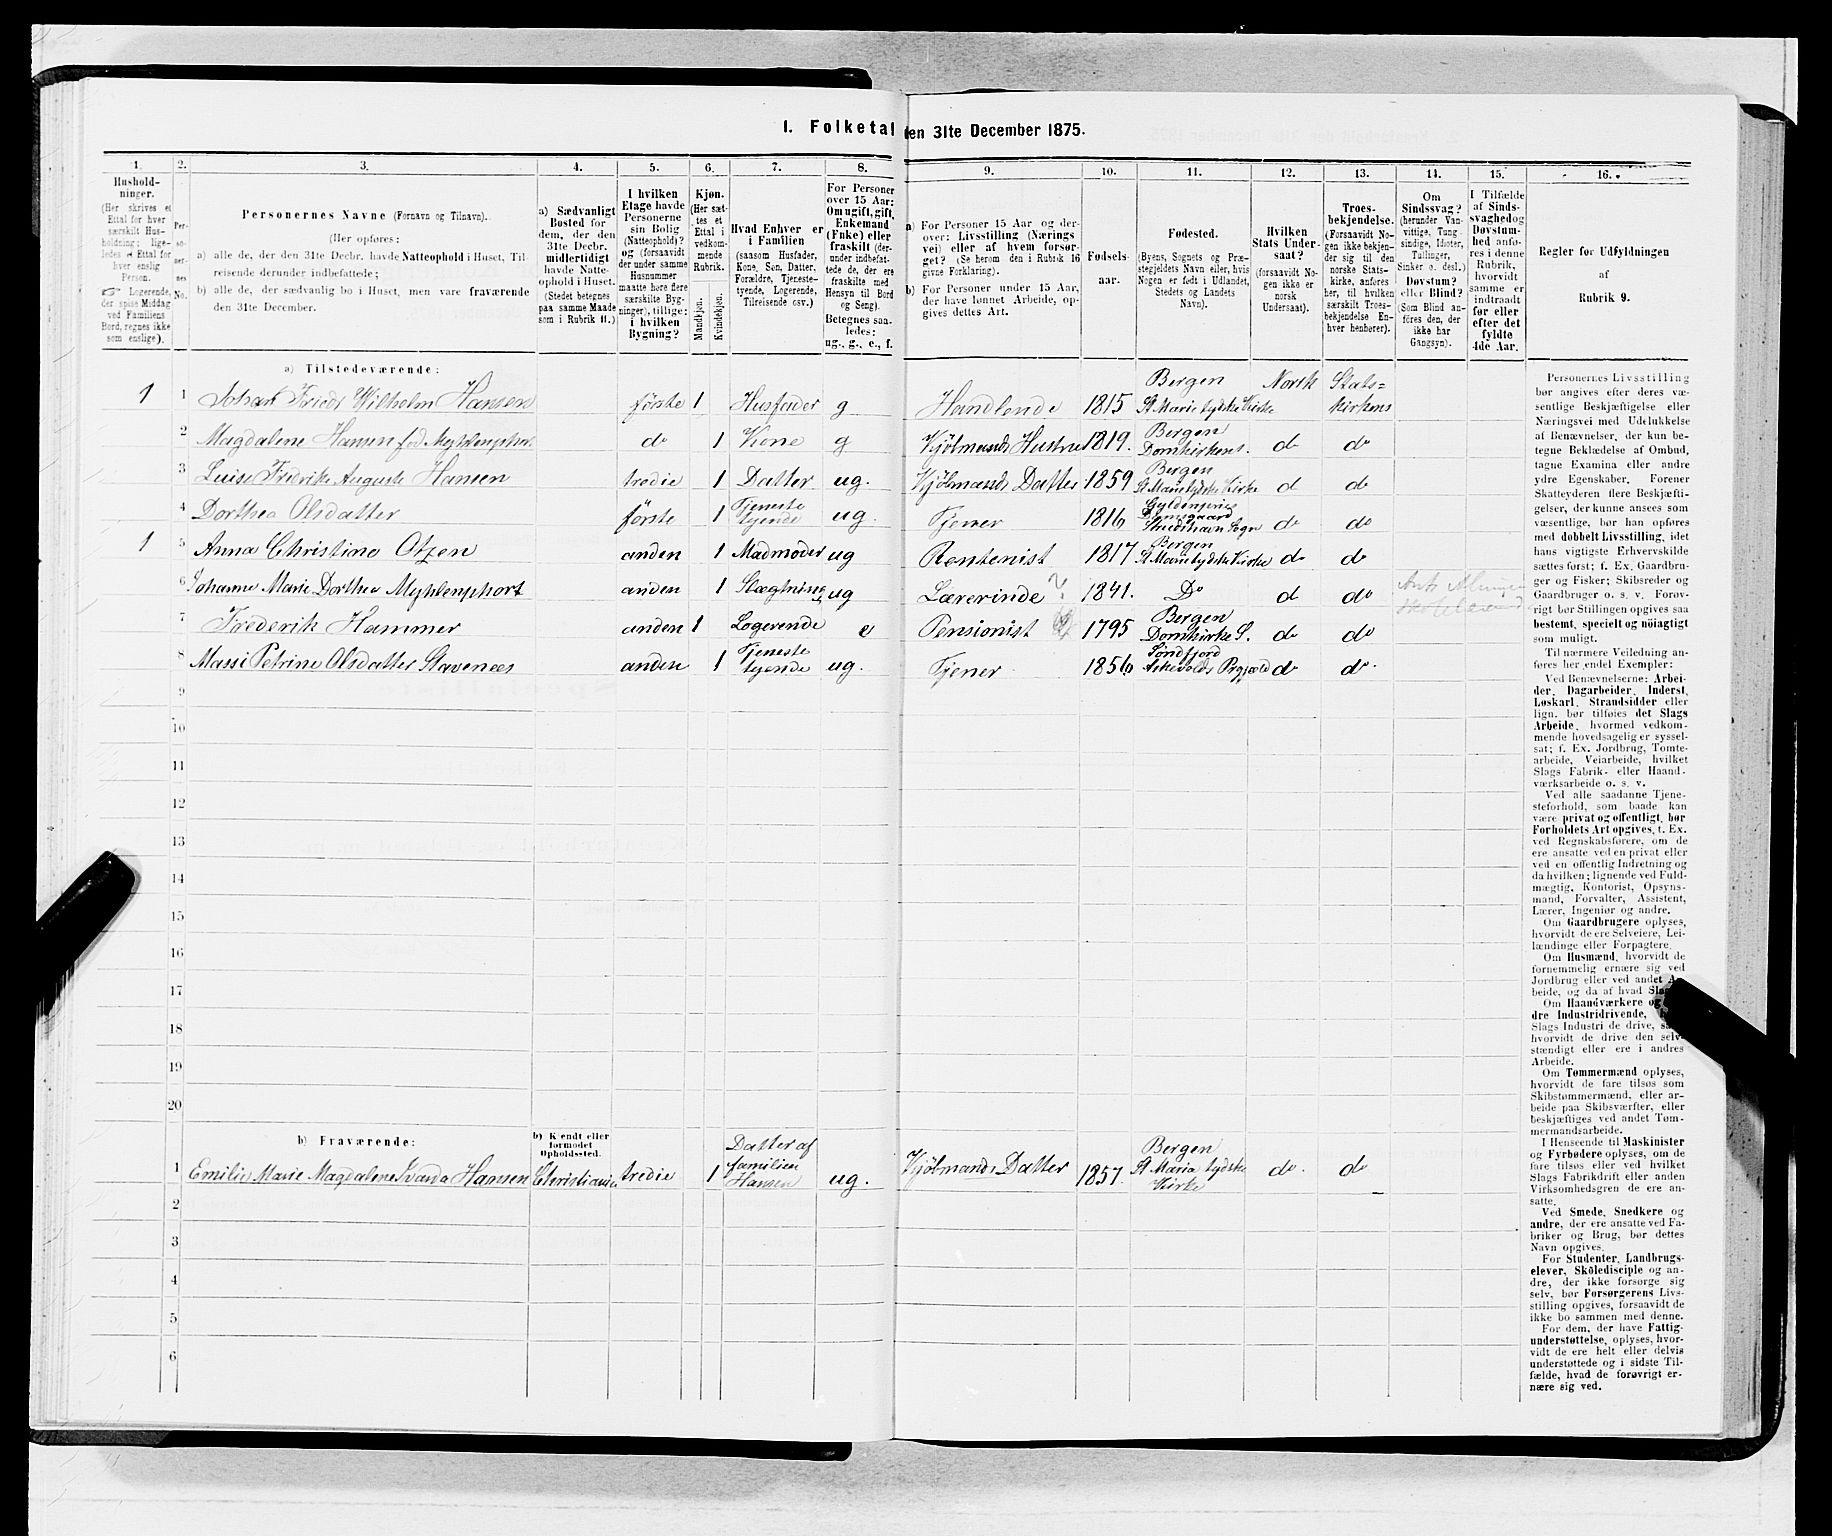 1. Folketal den 31te December 1875.
1. 2. 3. 4. 5. 6. 7. 8. 9. 10. 11. 12. 13. 14. 15. 16.
Hushold-
ninger.
(Her skrives et
Ettal for hver
særskilt Hus-
holdning; lige-
ledes et Ettal for
hver enslig
Person.
Logerende,
der spise Middag
ved Familiens
Bord, regnes ikke
som enslige).
Per-
so-
ner-
nes
No.
Personernes Navne (Fornavn og Tilnavn).
(Her opføres:
a) alle de, der den 31te Decbr. havde Natteophold i Huset, Til-
reisende derunder indbefattede;
b) alle de, der sædvanlig bo i Huset, men vare fraværende
den 31te December.
a) Sædvanligt
Bosted for
dem, der den
31te Decbr.
midlertidigt
havde Natte-
ophold i Huset.
(Stedet betegnes
paa samme Maade
som i Rubrik 11.)
I hvilken
Etage havde
Personerne
sin Bolig
(Natteophold)?
og (forsaavidt
der under samme
Husnummer
maatte høre flere
særskilte Byg-
ninger), tillige:
i hvilken
Bygning?
Kjøn.
(Her sæt-
tes et
Ettal i
vedkom-
mende
Rubrik.
Mandkjøn.
Kvindekjøn.
Hvad Enhver er
i Familien
(saasom Husfader,
Kone, Søn, Datter,
Forældre, Tjeneste-
tyende, Logerende,
Tilreisende osv.)
For Personer
over 15 Aar:
Om ugift, gift,
Enkemand
(Enke) eller
fraskilt (der-
under indbefat-
tede de, der ere
fraskilte med
Hensyn til Bord
og Seng).
Betegnes saa-
ledes:
ug., g., e., f.
a) For Personer 15 Aar og der-
over: Livsstilling (Nærings
vei) eller af hvem forsør-
get? (Se herom den i Rubrik 16
givne Forklaring).
b) For Personer under 15 Aar,
der have lønnet Arbeide, op-
gives dettes Art.
Fødsels-
aar.
Fødested.
(Byens, Sognets og Præ-
stegjeldets Navn eller, hvis
Nogen er født i Udlandet,
Stedets og Landets
Navn).
Hvilken
Stats Under-
saat?
(forsaavidt No-
gen ikke er
norsk
Undersaat).
Troes-
bekjendelse.
(Forsaavidt No-
gen ikke bekjen-
der sig til den
norske Stats-
kirke, anføres
her, til hvilken
særskilt Troes-
bekjendelse En-
hver henhører).
Om
Sindssvag?
(herunder Van-
vittige, Tung-
sindige, Idioter,
Tullinger,
Sinker o. desl.)
Døvstum?
eller Blind?
(Som Blind an-
føres den, der
ikke har
Gangsyn).
I Tilfælde
af Sinds-
svaghed og
Døvstum-
hed anfø-
res i denne
Rubrik,
hvorvidt
samme er
indtraadt
før eller
efter det
fyldte
4de Aar.
Regler for Udfyldningen
af
Rubrik 9.
a) Tilstedeværende:
1 1 Johan Friedr Wilhelm Hansen første 1 Husfader g Handlende 1815 Bergen St Marie tydske Kirke Norsk Stats=kirkens
2 Magdalene Hansen fød Myhlenphort do 1 Kone g Kjøbmands Hustru 1819. Bergen Domkirkens. do do
3 Luise Fredrike Auguste Hansen tredie 1 Datter ug. Kjøbmands Datter 1859 Bergen St Marie tydske Kirke d do
4 Dorthea Olsdatter første 1 Tjeneste tyende ug. Tjener 1816 Sogn do do
1 5 Anna Christine Otzen anden 1 Madmoder ug Rentenist 1817 Bergen St Marie tydske Kirke do do
6 Johanne Marie Dorthea Myhlenphort anden 1 Slægtning ug Lærerinde ? 1841. Do d do
7 Frederik Hammer anden 1 Logerende e Pensionist 1795 Bergen Domkirke S. do do
8 Massi Petrine Olsdatter Stavenees anden 1 Tjeneste tyende ug. Tjener 1856 Søndfjord Askevolds Prgjæld do do.
9
10
11
12
13
14
15
16
17
18
19
20
b) Fraværende:
b) Kjendt eller
formodet
Opholdssted.
1 Emilie Marie Magdalene Hansen Christiania tredie 1 Datter af familien Hansen ug. Kjøbmands Datter 1857. Bergen St Maria tydske Kirke do. do
2
3
4
5
6
Personernes Livsstilling
bør angives efter deres væ-
sentlige Beskjæftigelse eller
Næringsvei med Udelukkelse
af Benævnelser, der kun be-
tegne Beklædelse af Ombud,
tagne Examina eller andre
ydre Egenskaber. Forener
Skatteyderen flere Beskjæfti-
gelser, der kunne ansees som
væsentlige, bør han opføres
med dobbelt Livsstilling, idet
hans vigtigste Erhvervskilde
sættes først; f. Ex. Gaardbru-
ger og Fisker; Skibsreder og
Gaardbruger o. s. v. Forøv-
rigt bør Stillingen opgives saa
bestemt, specielt og nöiagtigt
som muligt.
Til nærmere Veiledning an-
føres her endel Exempler:
Ved Benævnelserne: Arbei-
der, Dagarbeider, Inderst,
Løskarl, Strandsidder eller
lign. bør tilføies det Slags
Arbeide, hvormed vedkom-
mende hovedsagelig er syssel-
sat; f. Ex. Jordbrug, Tomte-
arbeide, Veiarbeide, hvilket
Slags Fabrik- eller Haand-
værksarbeide o. s. v.
Ved alle saadanne Tjene-
steforhold, som baade kan
være privat og offentligt, bør
Forholdets Art opgives, t. Ex.
ved Regnskabsførere, om de
ere ansatte ved en privat eller
ved en offentlig Indretning og
da hvilken; lignende ved Fuld-
mægtig, Kontorist, Opsyns-
mand, Forvalter, Assistent,
Lærer, Ingeniør og andre.
Om Gaardbrugere oplyses,
hvorvidt de ere Selveiere, Lei-
lændinge eller Forpagtere.
Om Husmænd, hvorvidt de
fornemmelig ernære sig ved
Jordbrug eller ved andet Ar-
beide, og da af hvad
Om Haandværkere og
dre Industridrivende,
Slags Industri de drive,
hvorvidt de drive den selv-
stændigt eller ere i andres
Arbeide.
Om Tømmermænd oplyses,
hvorvidt de fare tilsøs som
Skibstømmermænd, eller ar-
beide paa Skibsværfter, eller
beskjæftiges ved andet Tøm-
mermandsarbeide.
I Henseende til Maskinister
og Fyrbødere oplyses, om de
fare tilsøs eller ved hvilket
Slags Fabrikdrift eller anden
Virksomhedsgren de ere an-
satte.
Ved Smede, Snedkere og
andre, der ere ansatte ved Fa-
briker og Brug, bør dettes
Navn opgives.
For Studenter, Landbrugs-
elever, Skoledisciple og an-
dre, der ikke forsørge sig
selv, bør Forsørgerens Livs-
stilling opgives, forsaavidt de
ikke bo sammen med denne.
For dem, der have Fattig-
understøttelse, oplyses, hvor-
vidt de ere helt eller delvis
understøttede og i sidste Til-
fælde, hvad de forøvrigt er-
nære sig ved.